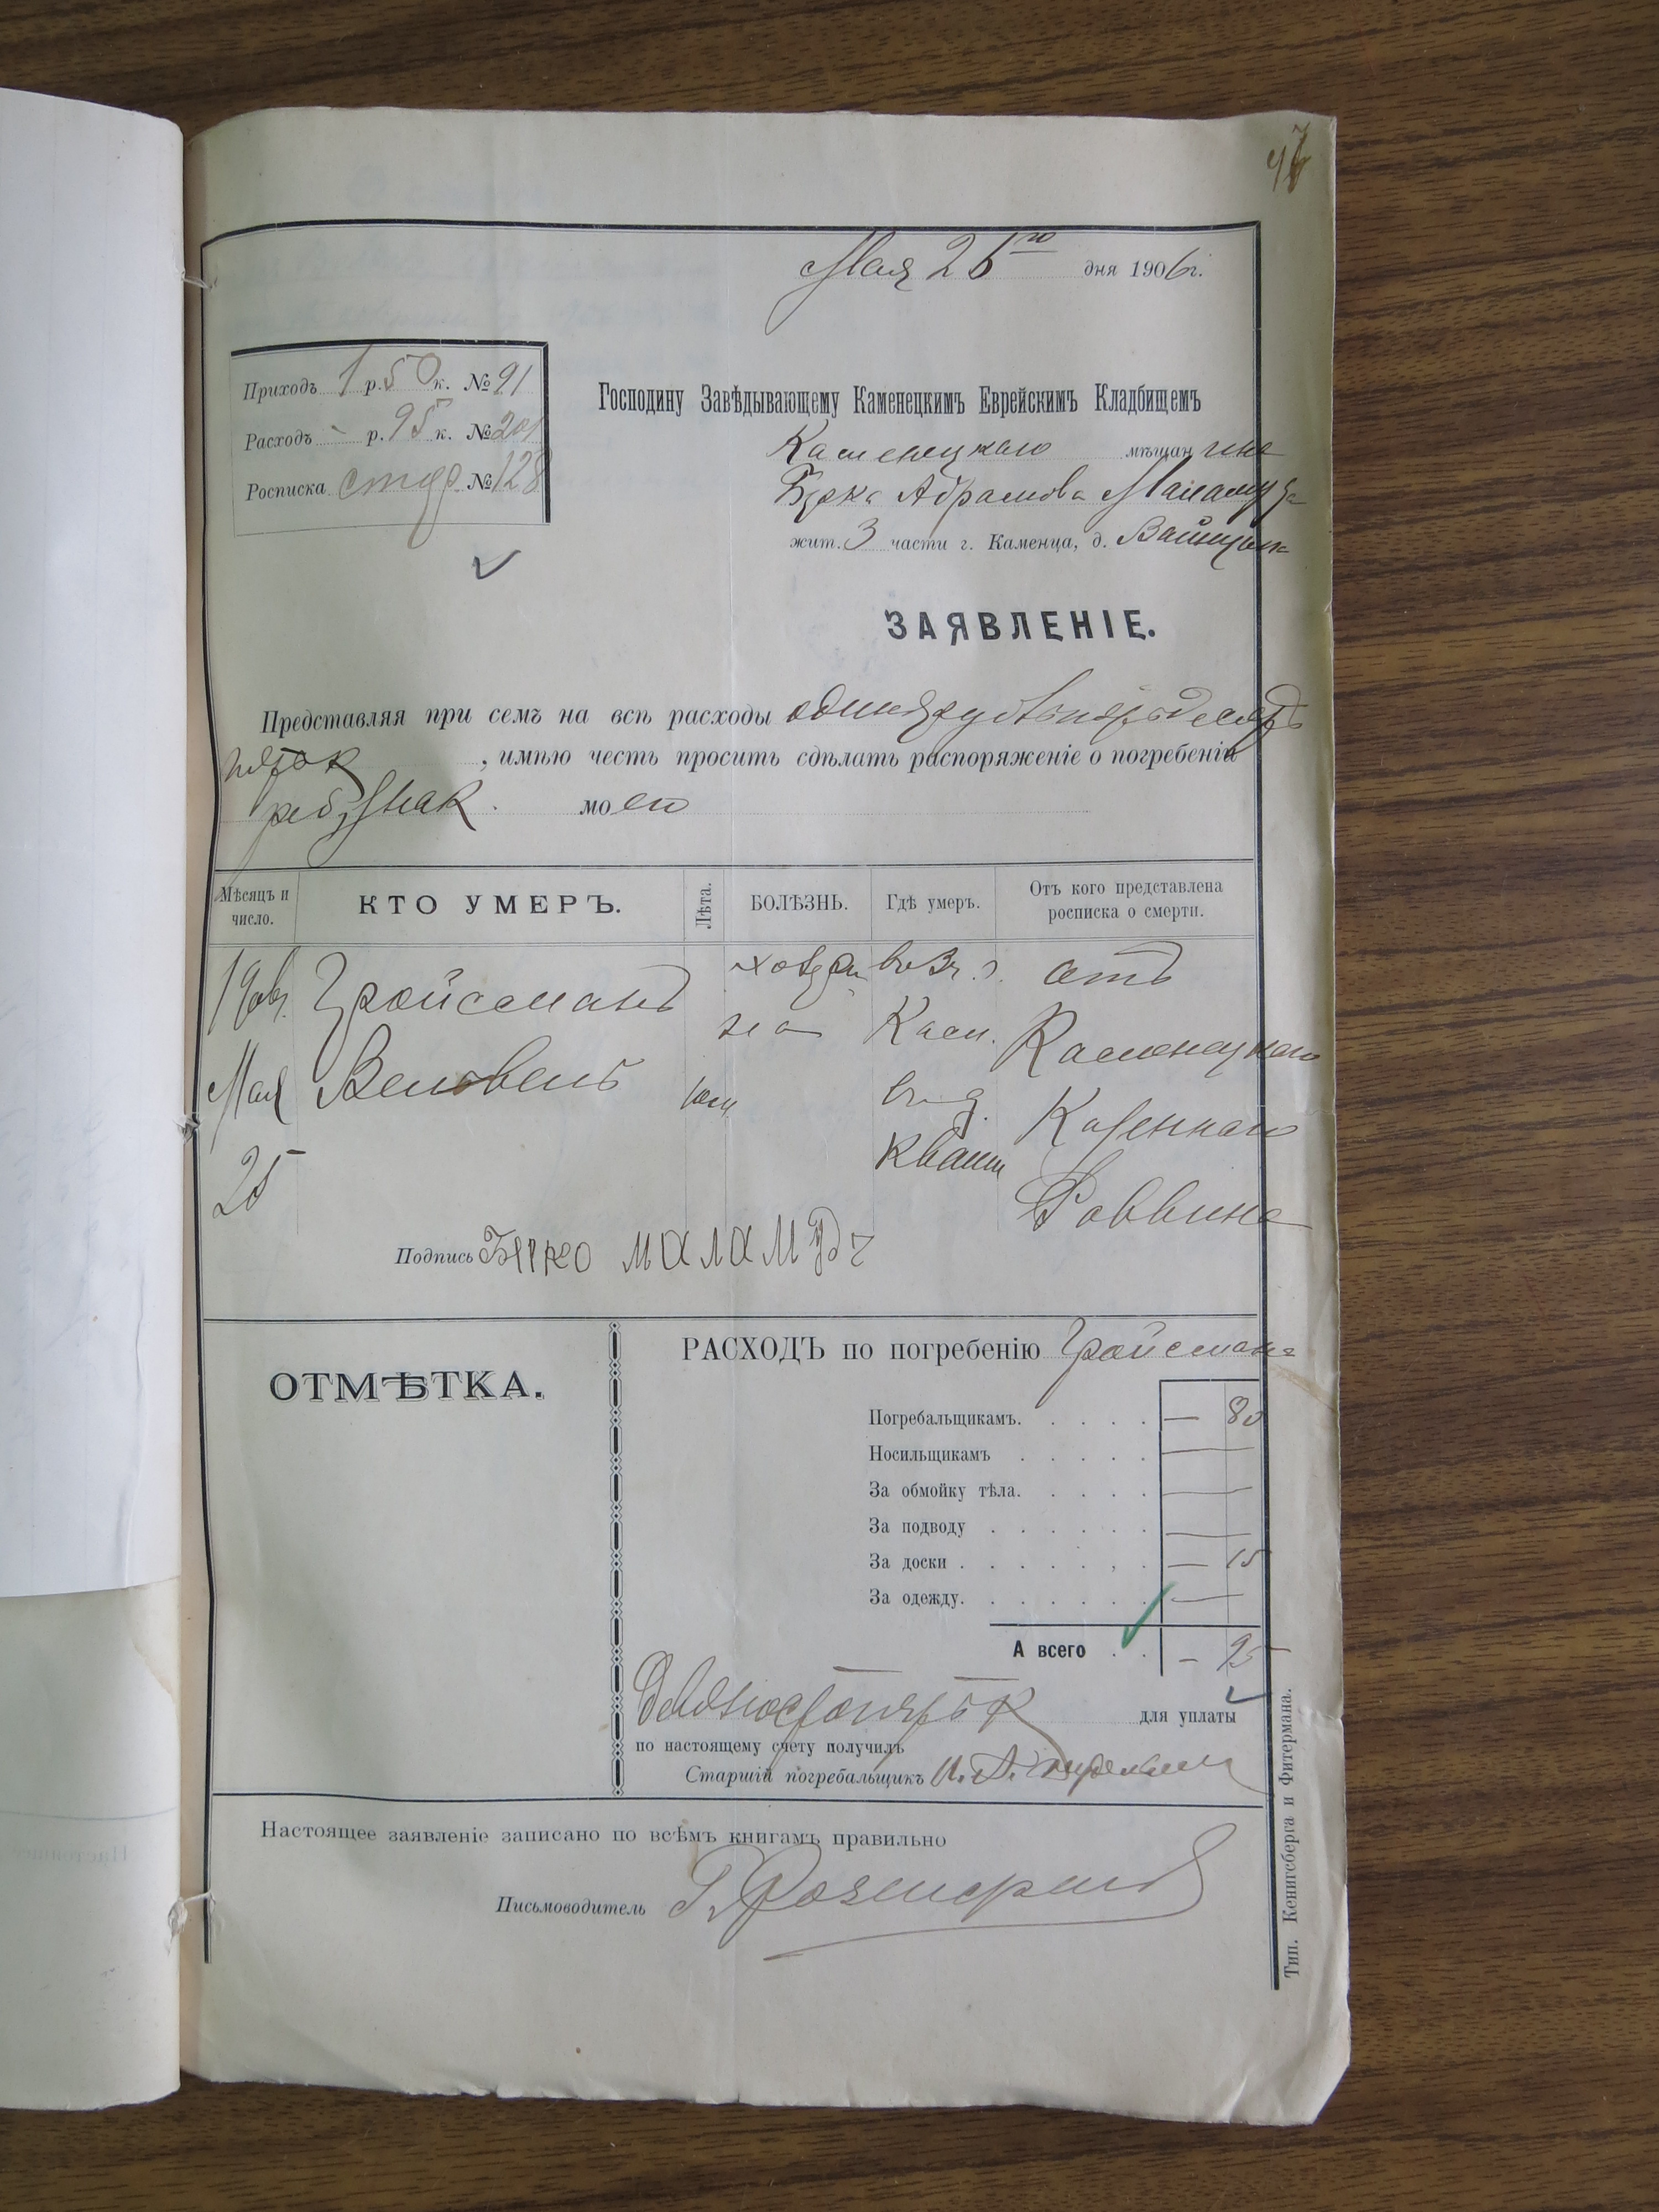 47
Мая 26го дня 1906 г.
Приходъ 1 р. 50 к. № 91
Расходъ - р. 95 к. № 201
Росписка № 128
Господину Завѣдывающему Каменецкимъ Еврейскимъ Кладбищемъ
Каменецкаго мѣщанина
Абрамова Маламуда
жит. 3 части г. Каменца, д.
ЗАЯВЛЕНІЕ.
Представляя при семъ на всѣ расходы
, имѣю честь просить сдѣлать распоряженіе о погребеніи
моего
Мѣсяцъ и число.
КТО УМЕРЪ.
Лѣта.
БОЛѢЗНЬ.
Гдѣ умеръ.
Отъ кого представлена росписка о смерти.
Гройсманъ
во 3 ч. г.
отъ
Кам.
Каменецкаго
Мая
Казеннаго
25
кварт
Раввина
Подпись маламуд
ОТМѢТКА.
РАСХОДЪ по погребенію Гройсмана
Погребальщикамъ. — 80
Носильщикамъ —
За обмойку тѣла. —
За подводу —
За доски — 15
За одежду. —
А всего — 95
Девяносто пять к для уплаты
по настоящему счету получилъ
Старшій погребальщикъ
Настоящее заявленіе записано по всѣмъ книгамъ правильно
Письмоводитель
Тип. Кенигсберга и Фитермана.